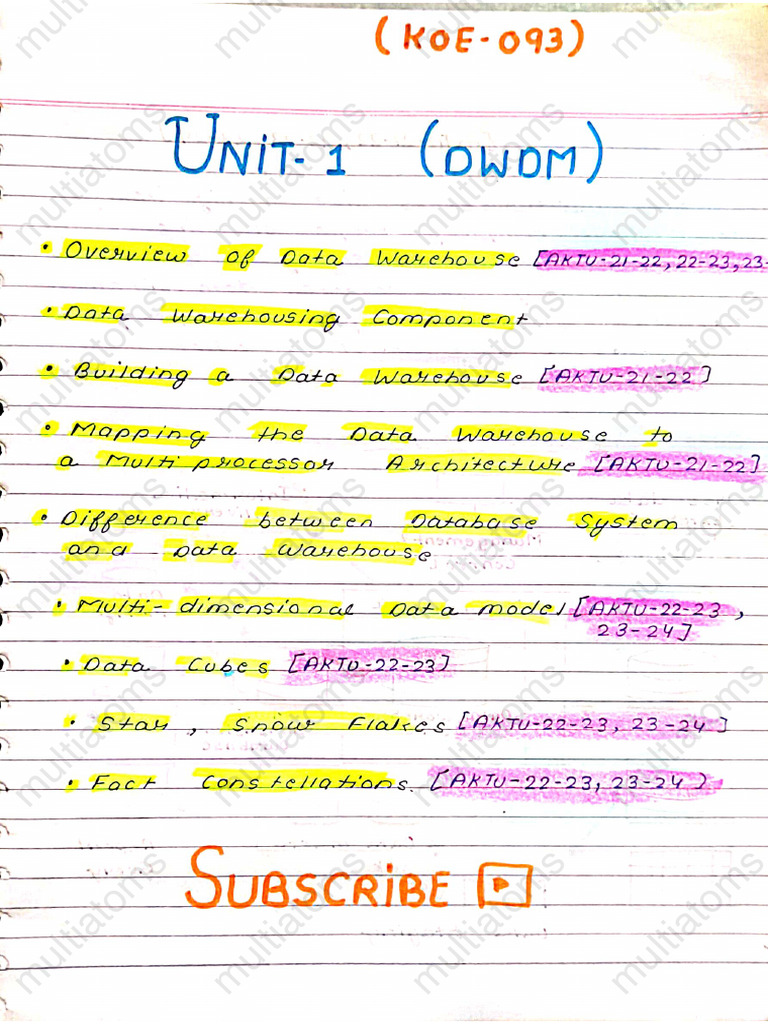 (KOE-093)
UNIT-1 (DWDM)
• Overview of Data Warehouse [AKTU-21-22, 22-23, 23-
• Data Warehousing Component
• Building a Data Warehouse [AKTU-21-22]
• Mapping the Data Warehouse to
a Multiprocessor Architecture [AKTU-21-22]
• Difference between Database System
and Data Warehouse
• Multi-dimensional Data model [AKTU-22-23,
23-24]
• Data Cubes [AKTU-22-23]
• Star, Snow Flakes [AKTU-22-23, 23-24]
• Fact Constellations. [AKTU-22-23, 23-24)
SUBSCRIBE
multiatoms